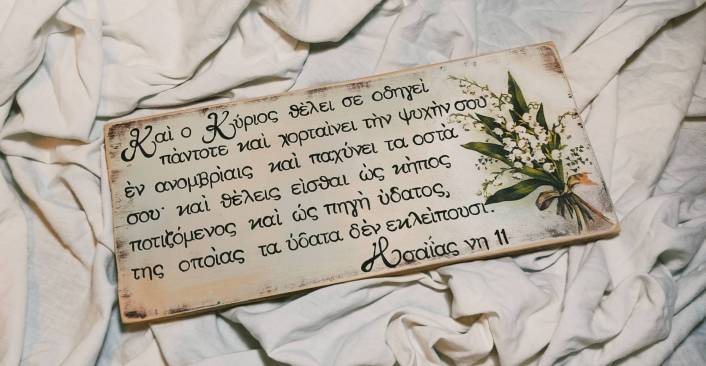 Καὶ ο Κύριος θέλει σε οδηγεὶ
πάντοτε καὶ χορταίνει τὴν ψυχὴν σου
ἐν ανομβρίαις καὶ παχύνει τα οστὰ
σου· καὶ θέλεις εἰσθαι ὡς κῆπος
ποτιζόμενος καὶ ὡς πηγὴ ὑδατος,
της οποίας τα ὑδατα δέν εκλεἰπουσι.
Ησαΐας νη 11